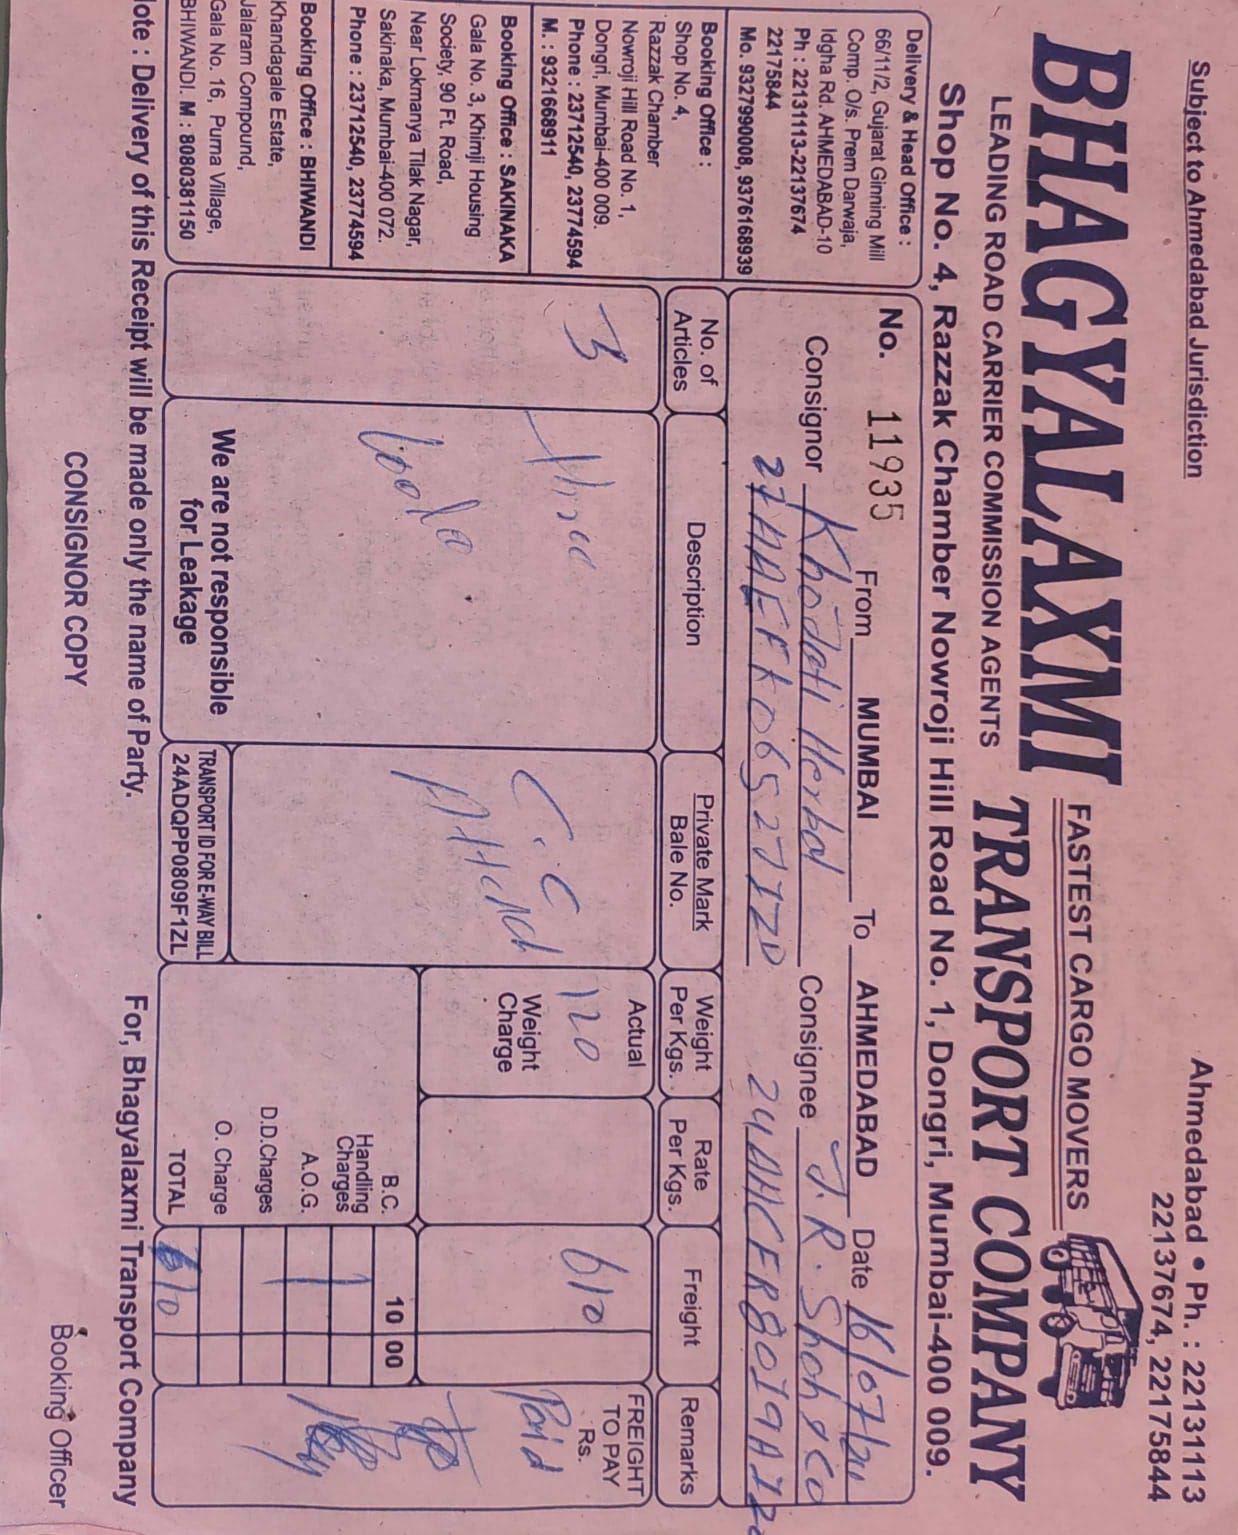 Subject to Ahmedabad Jurisdiction
Ahmedabad • Ph. : 22131113
22137674, 22175844
BHAGYALAXMI
FASTEST CARGO MOVERS
LEADING ROAD CARRIER COMMISSION AGENTS
TRANSPORT COMPANY
Shop No. 4, Razzak Chamber Nowroji Hill Road No. 1, Dongri, Mumbai-400 009.
Delivery & Head Office :
66/11/2, Gujarat Ginning Mill
Comp. O/s. Prem Darwaja,
Idgha Rd. AHMEDABAD-10
Ph : 22131113-22137674
22175844
Mo. 9327990008, 9376168939
Booking Office :
Shop No. 4,
Razzak Chamber
Nowroji Hill Road No. 1,
Dongri, Mumbai-400 009.
Phone : 23712540, 23774594
M. : 9321668911
Booking Office : SAKINAKA
Gala No. 3, Khimji Housing
Society, 90 Ft. Road,
Near Lokmanya Tilak Nagar,
Sakinaka, Mumbai-400 072.
Phone : 23712540, 23774594
Booking Office : BHIWANDI
Khandagale Estate,
Jalaram Compound,
Gala No. 16, Purna Village,
BHIWANDI. M : 8080381150
No. 11935 From MUMBAI To AHMEDABAD Date 16/07/20
Consignor Khodati Herbal Consignee J. R. Shah & Co
No. of Articles
Description
Private Mark
Bale No.
Weight Per Kgs.
Rate Per Kgs.
Freight
Remarks
3
Three
C.C
Attached
Actual
120
Weight Charge
610
FREIGHT TO PAY Rs.
Paid
B.C. 10 00
Handling Charges
A.O.G.
D.D.Charges
O. Charge
TOTAL 610
We are not responsible
for Leakage
TRANSPORT ID FOR E-WAY BILL
24ADQPP0809F1ZL
Note : Delivery of this Receipt will be made only the name of Party.
For, Bhagyalaxmi Transport Company
CONSIGNOR COPY
Booking Officer